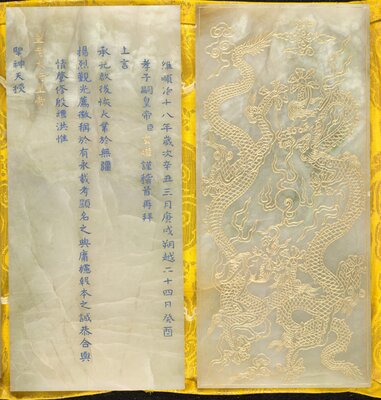 維順治十八年歲次辛丑三月庚戌朔越二十四日癸酉
孝子嗣皇帝臣謹稽首再拜
上言
承祧啟後恢大業於無疆
揚烈觀光薦徽稱於有永載考顯名之典庸攄報本之誠恭合輿
情聿修殷禮洪惟
聖神天授